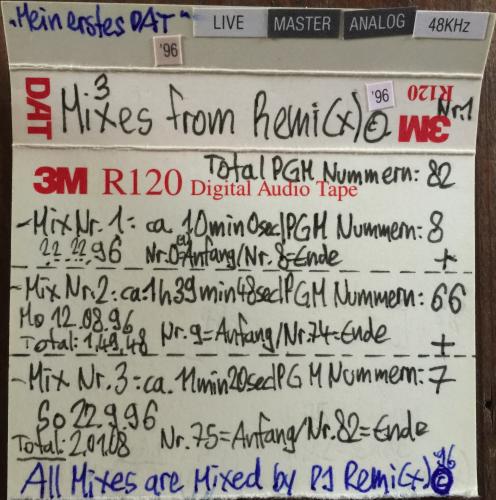 "Mein erstes DAT" LIVE MASTER ANALOG 48KHz
'96
DAT 3 Mixes from Remi(x) © '96 R120 3M Nr.1
Total PGM Nummern: 82
3M R120 Digital Audio Tape
-Mix Nr. 1: ca. 10min0sec|PGM Nummern: 8
22.22.96 Nr.0=Anfang/Nr. 8=Ende +
-Mix Nr.2: ca1h39min48sec|PGM Nummern: 66
Mo 12.08.96
Total: 1,49,48 Nr.9=Anfang/Nr.74=Ende +
-Mix Nr. 3: ca. 11min20sec|PGM Nummern: 7
So 22.9.96
Total: 2.01.08 Nr.75=Anfang/Nr.82=Ende
All Mixes are Mixed by DJ Remi(x) © 96